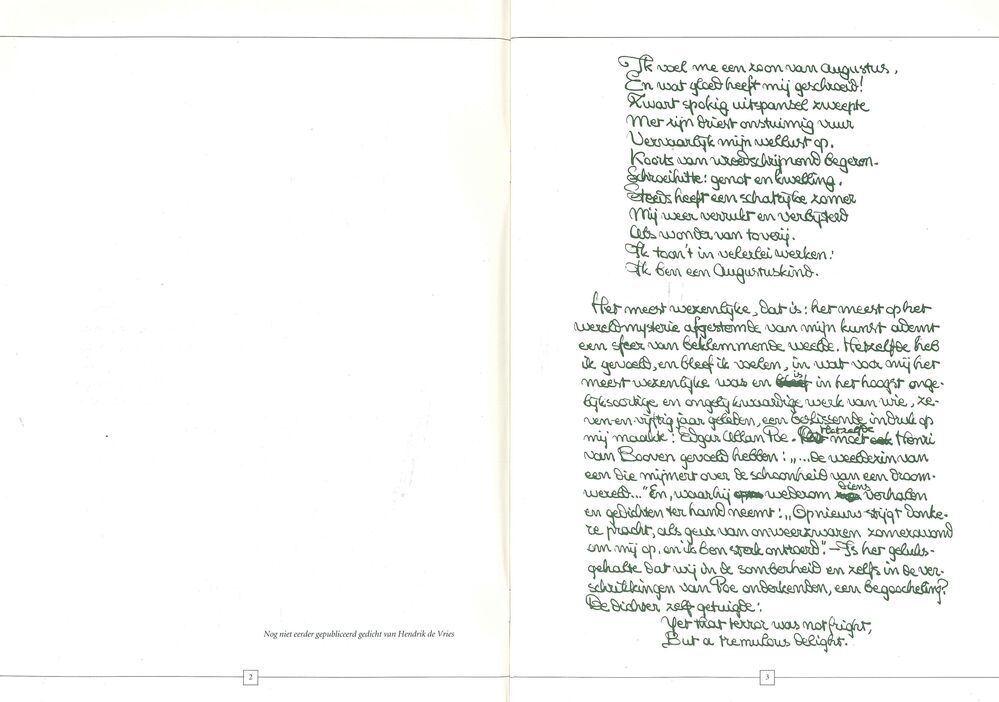 Nog niet eerder gepubliceerd gedicht van Hendrik de Vries
2
Ik voel me een zoon van Augustus,
En wat gloed heeft mij geschroeid!
Zwart spokig uitspansel zweepte
Met zijn driest onstuimig vuur
Vervaarlijk mijn wellust op.
Koorts van wreedschrijnend begeren.
Schroeihitte: genot en kwelling.
Steeds heeft een schatrijke zomer
Mij weer verrukt en verbijsterd
Als wonder van toverij.
Ik toon't in velerlei werken:
Ik ben een Augustuskind.
Het meest wezenlijke, dat is: het meest op het
wereldmysterie afgestemde van mijn kunst ademt
een sfeer van beklemmende weelde. Hetzelfde heb
ik gevoeld, en bleef ik voelen, in wat voor mij het
meest wezenlijke was en is in het hoogst onge-
lijksoortige en ongelijkwaardige werk van wie, ze-
ven-en-vijftig jaar geleden, een beslissende indruk op
mij maakte: Edgar Allan Poe. Hetzelfde moet Henri
van Booven gevoeld hebben: „...de weelderin van
een die mijmert over de schoonheid van een droom-
wereld..." En, waar hij wederom diens verhalen
en gedichten ter hand neemt: „Opnieuw stijgt donke-
re pracht, als geur van onweerzwaren zomeravond
om mij op, en ik ben sterk ontroerd". — Is het geluks-
gehalte dat wij in de somberheid en zelfs in de ver-
schrikkingen van Poe onderkenden, een begoocheling?
De dichter zelf getuigde:
Yet that terror was not fright,
But a tremulous delight.
3